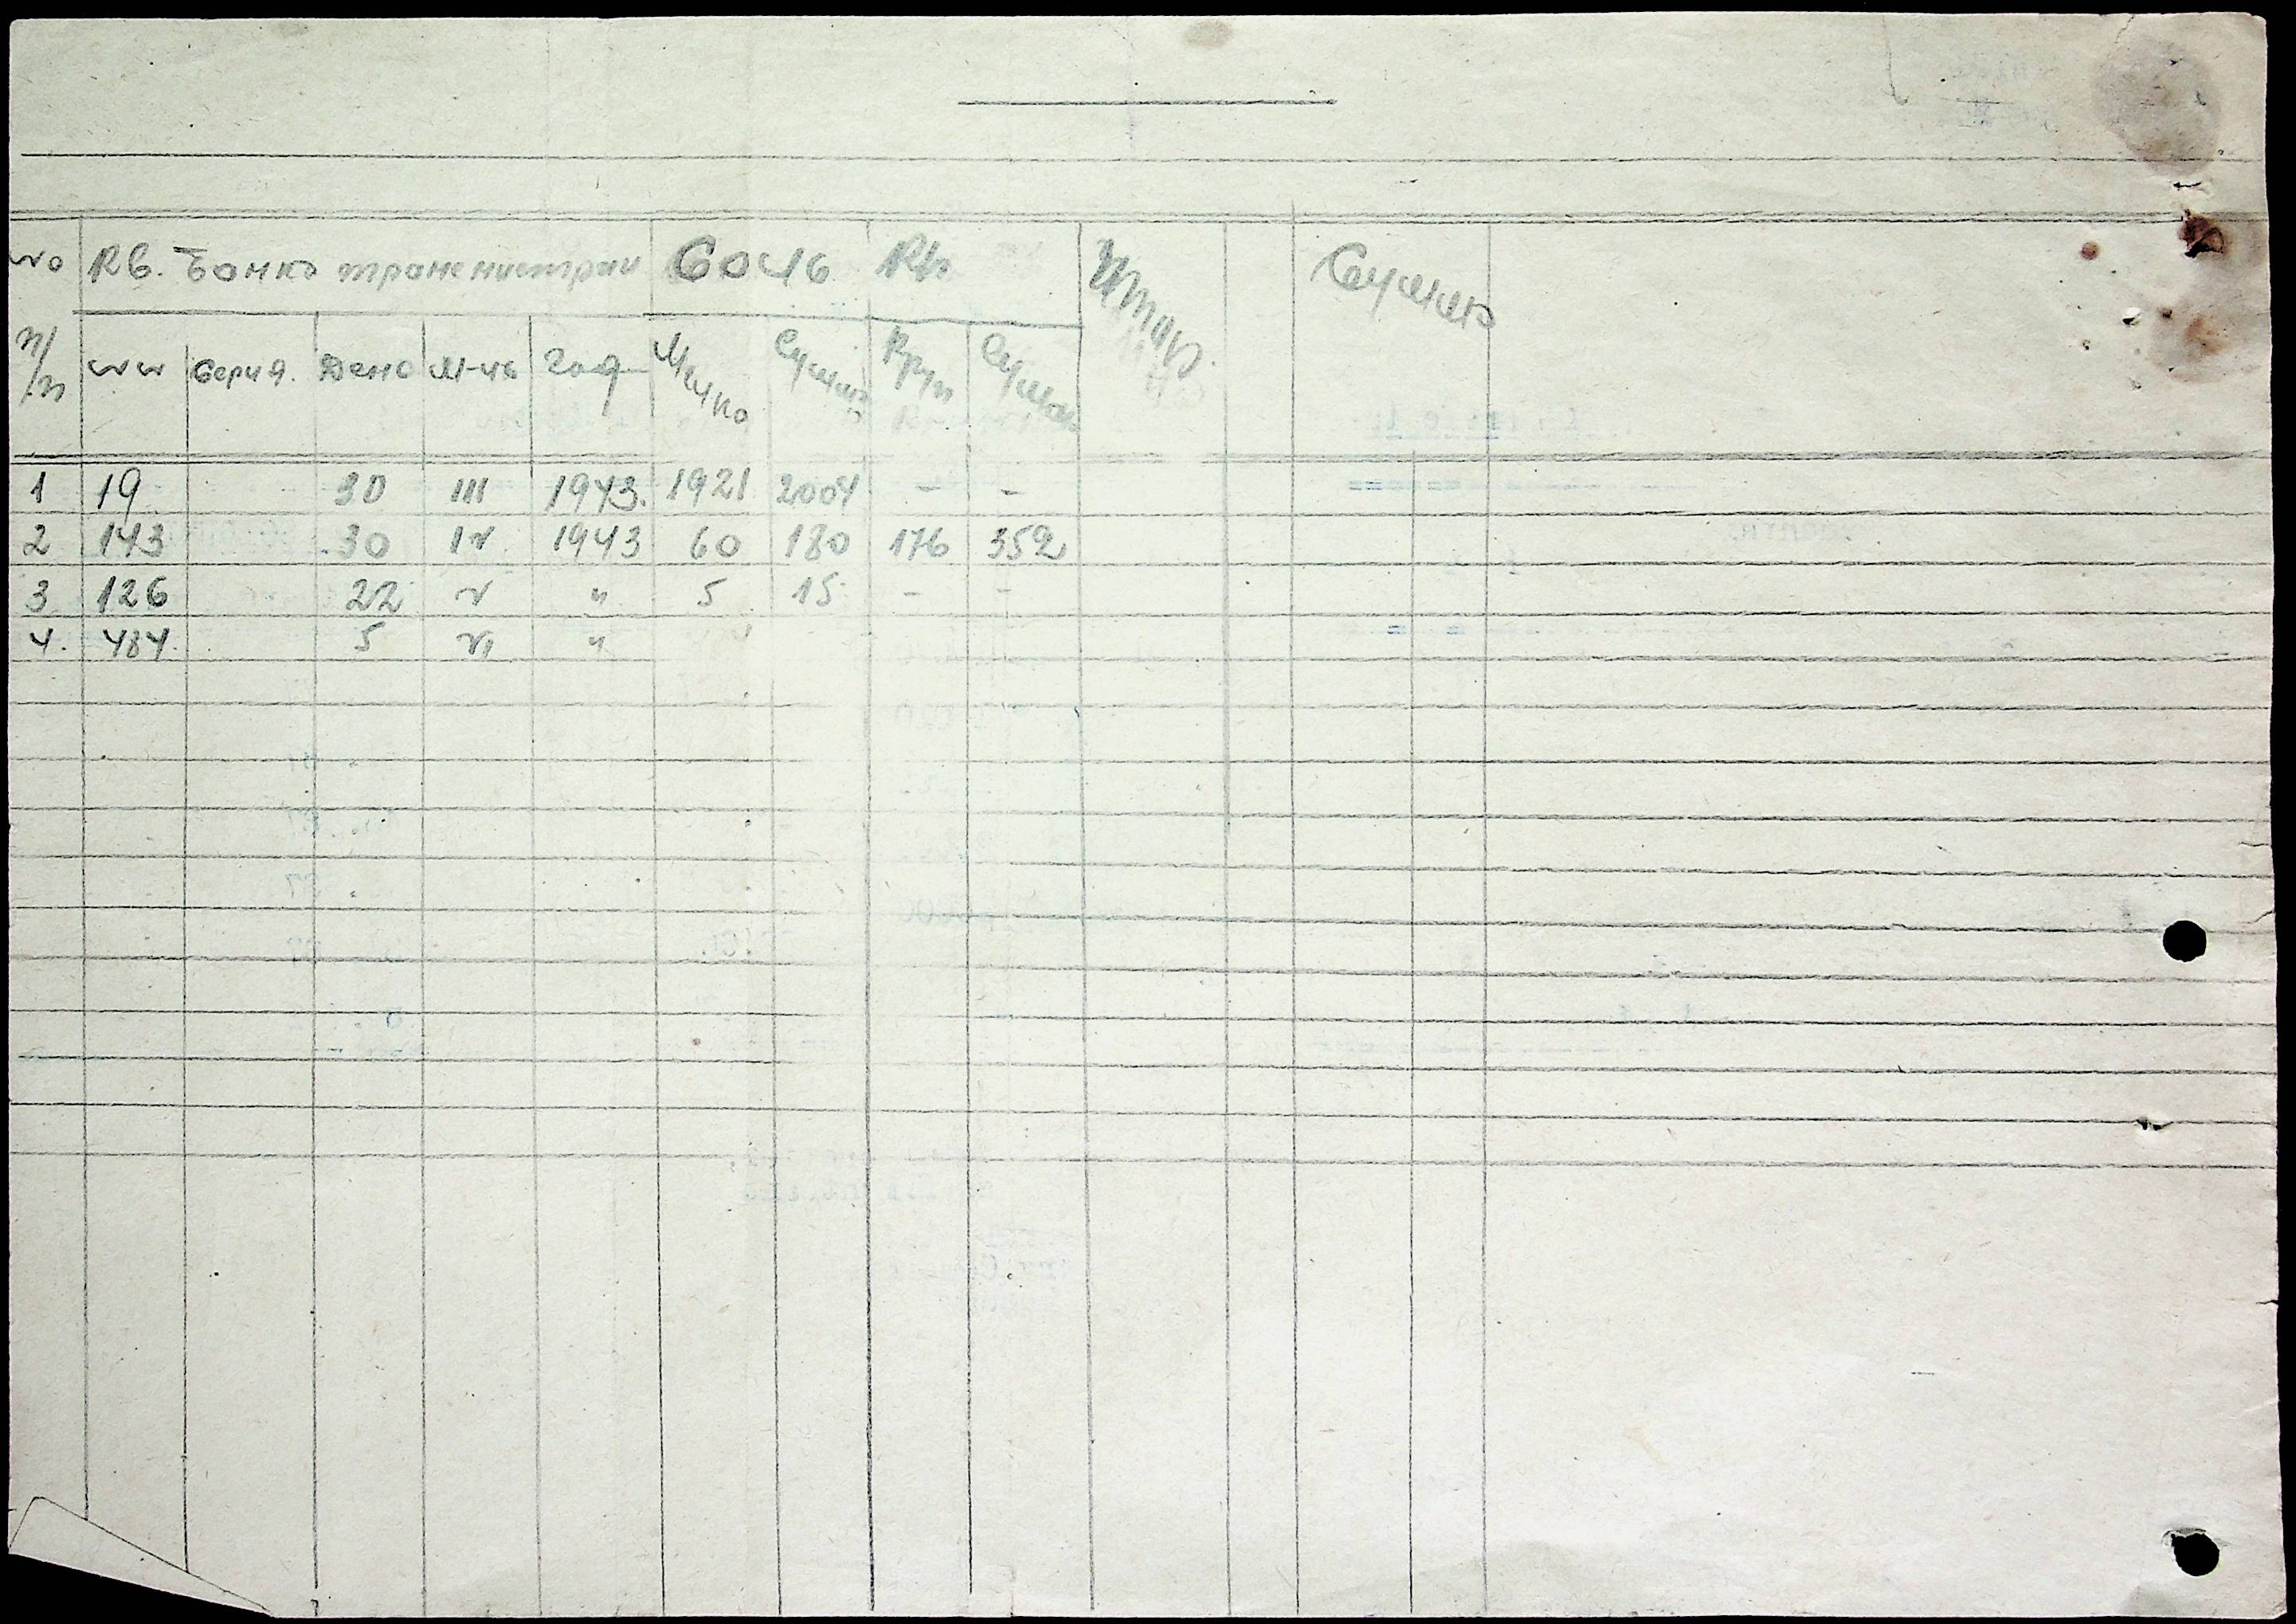 № Кв. Банка транснистрии Сочь Кр Итого Сумма
п/п №№ Серия. День М-ць Год Мучка Сумма Круп Сумма
1 19 30 III 1943. 1921 2004 - -
2 143 30 IV 1943 60 180 176 352
3 126 22 V " 5 15 - -
4. 484. 5 VI "